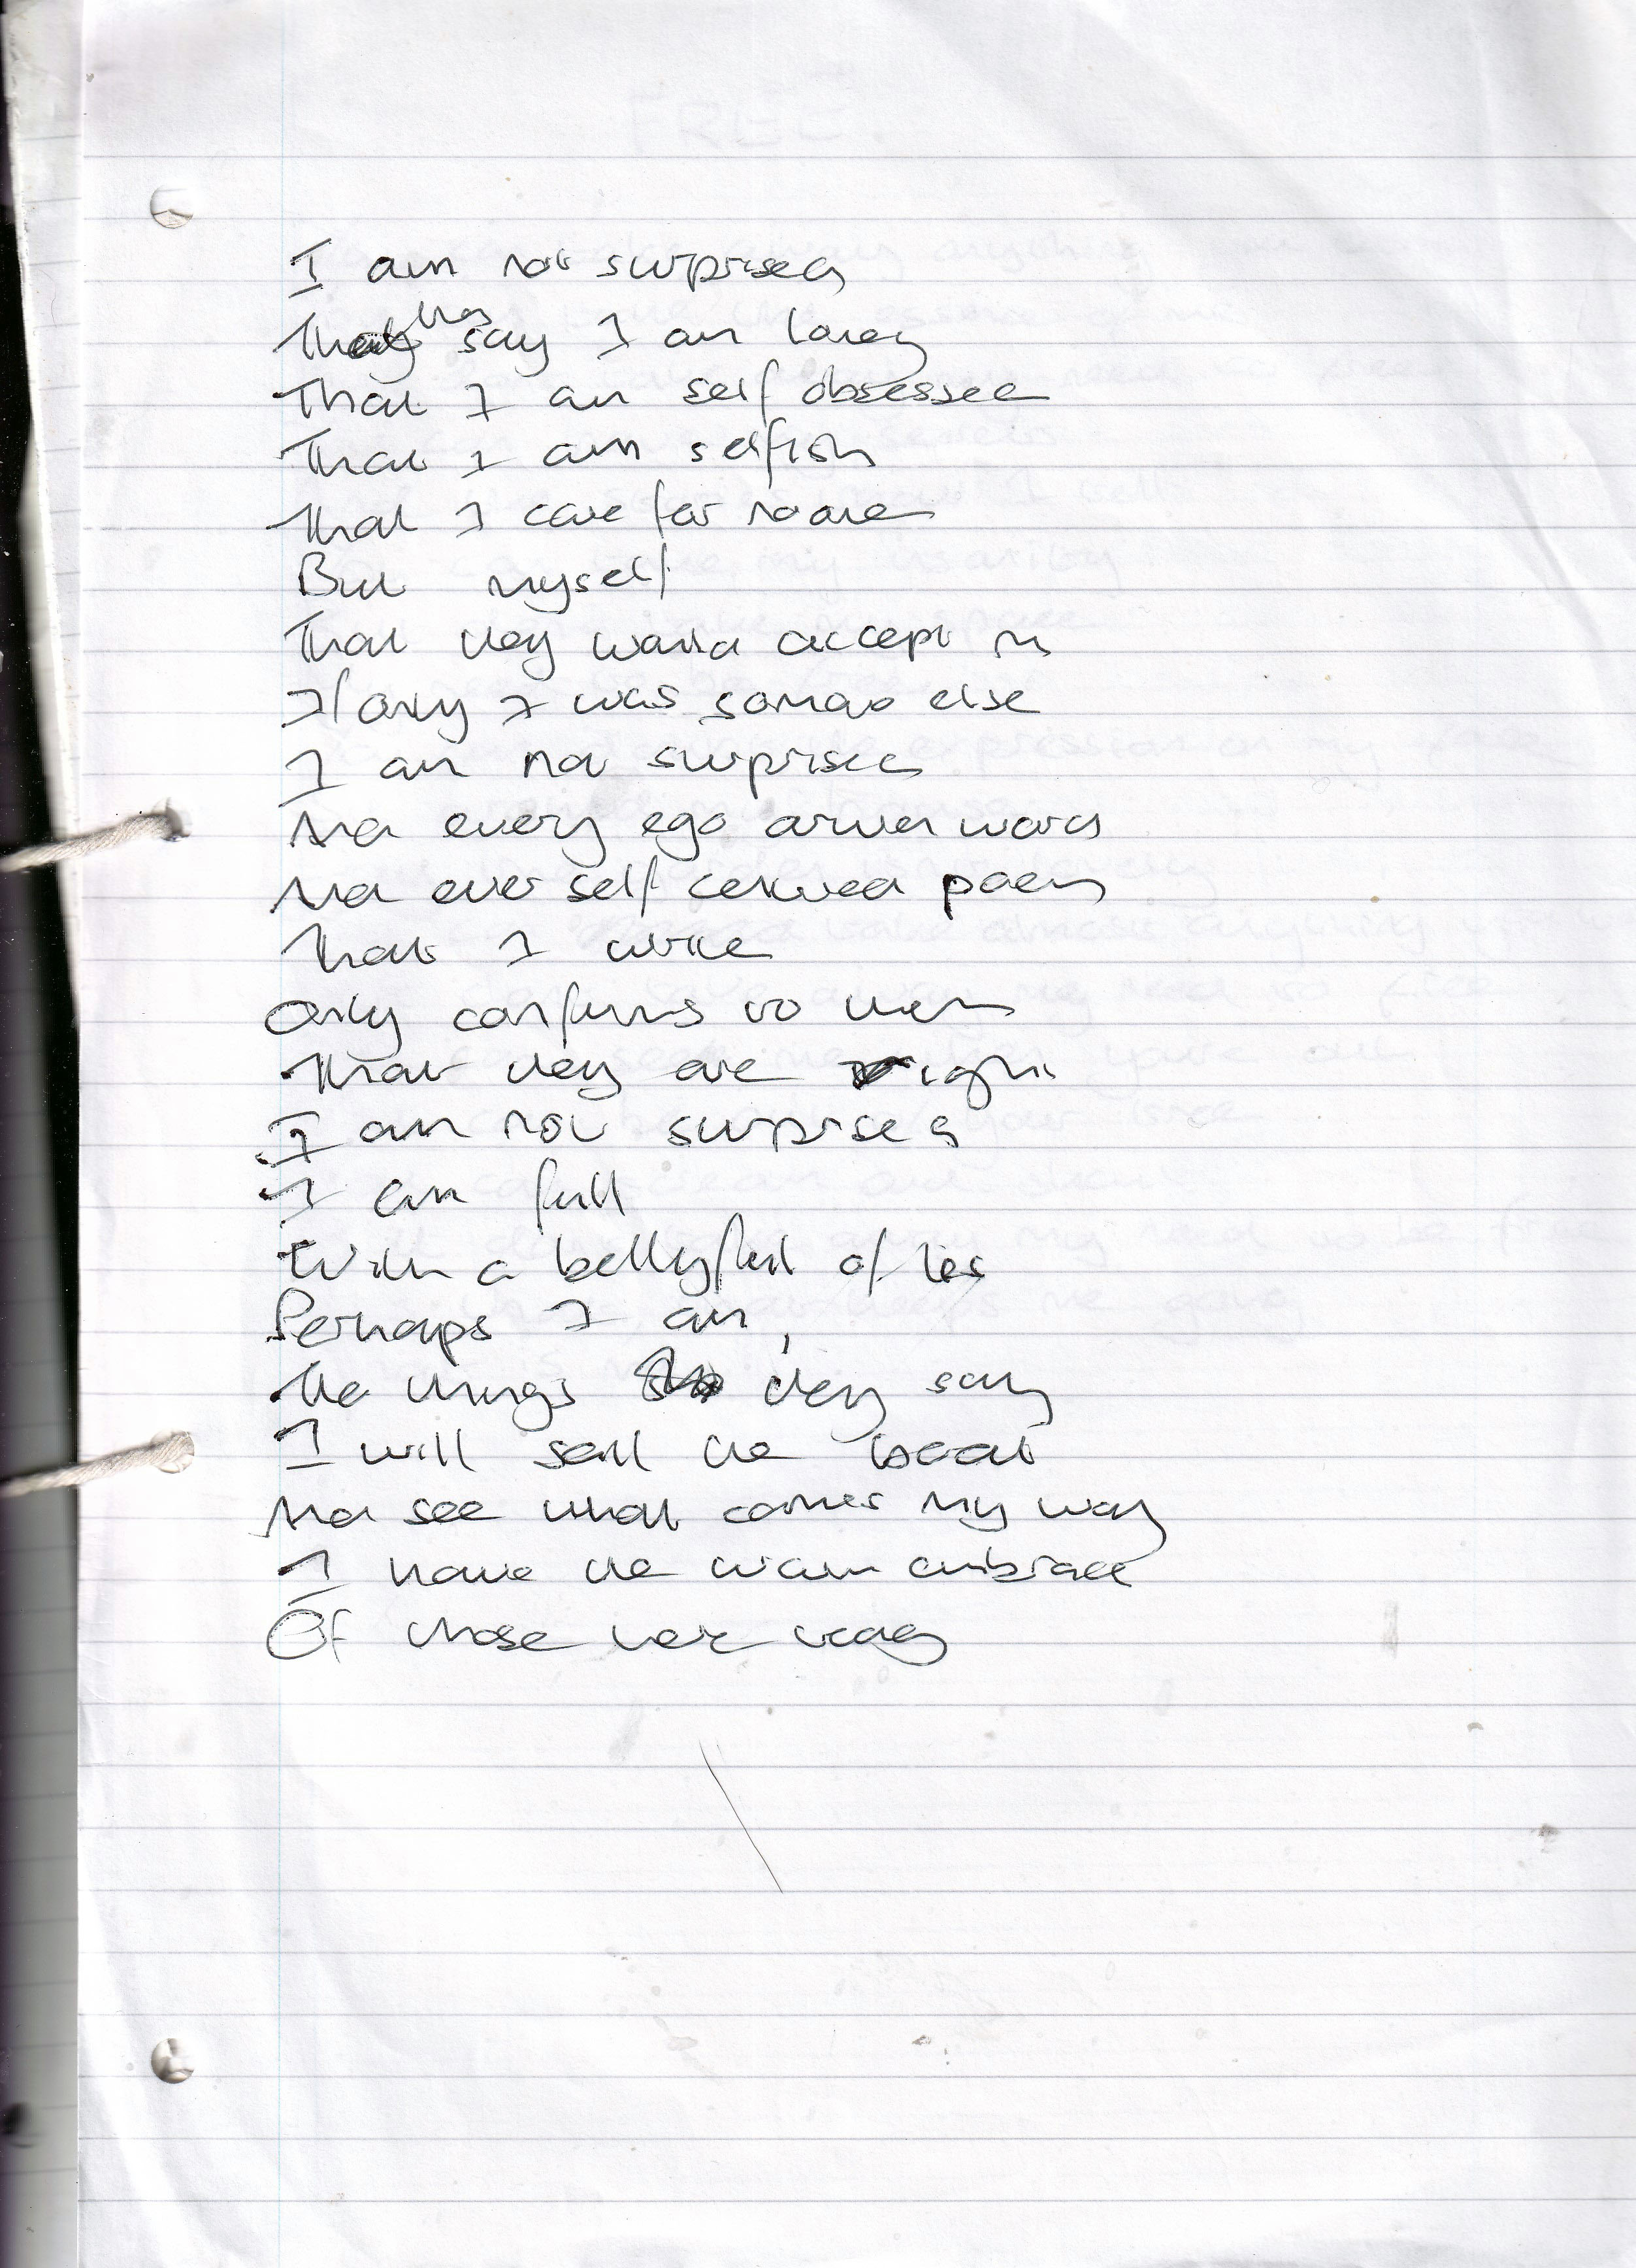 I am not surprised
That they say I am lonely
That I am self obsessed
That I am selfish
That I care for noone
But myself
That they would accept me
If only I was someone else
I am not surprised
And every ego driven word
And every self centred poem
That I write
Only confirms to them
That they are right
I am not surprised
I am full
With a belly full of lies
Perhaps I am,
The things they say
I will sail the boat
And see what comes my way
I have the warm embrace
Of those